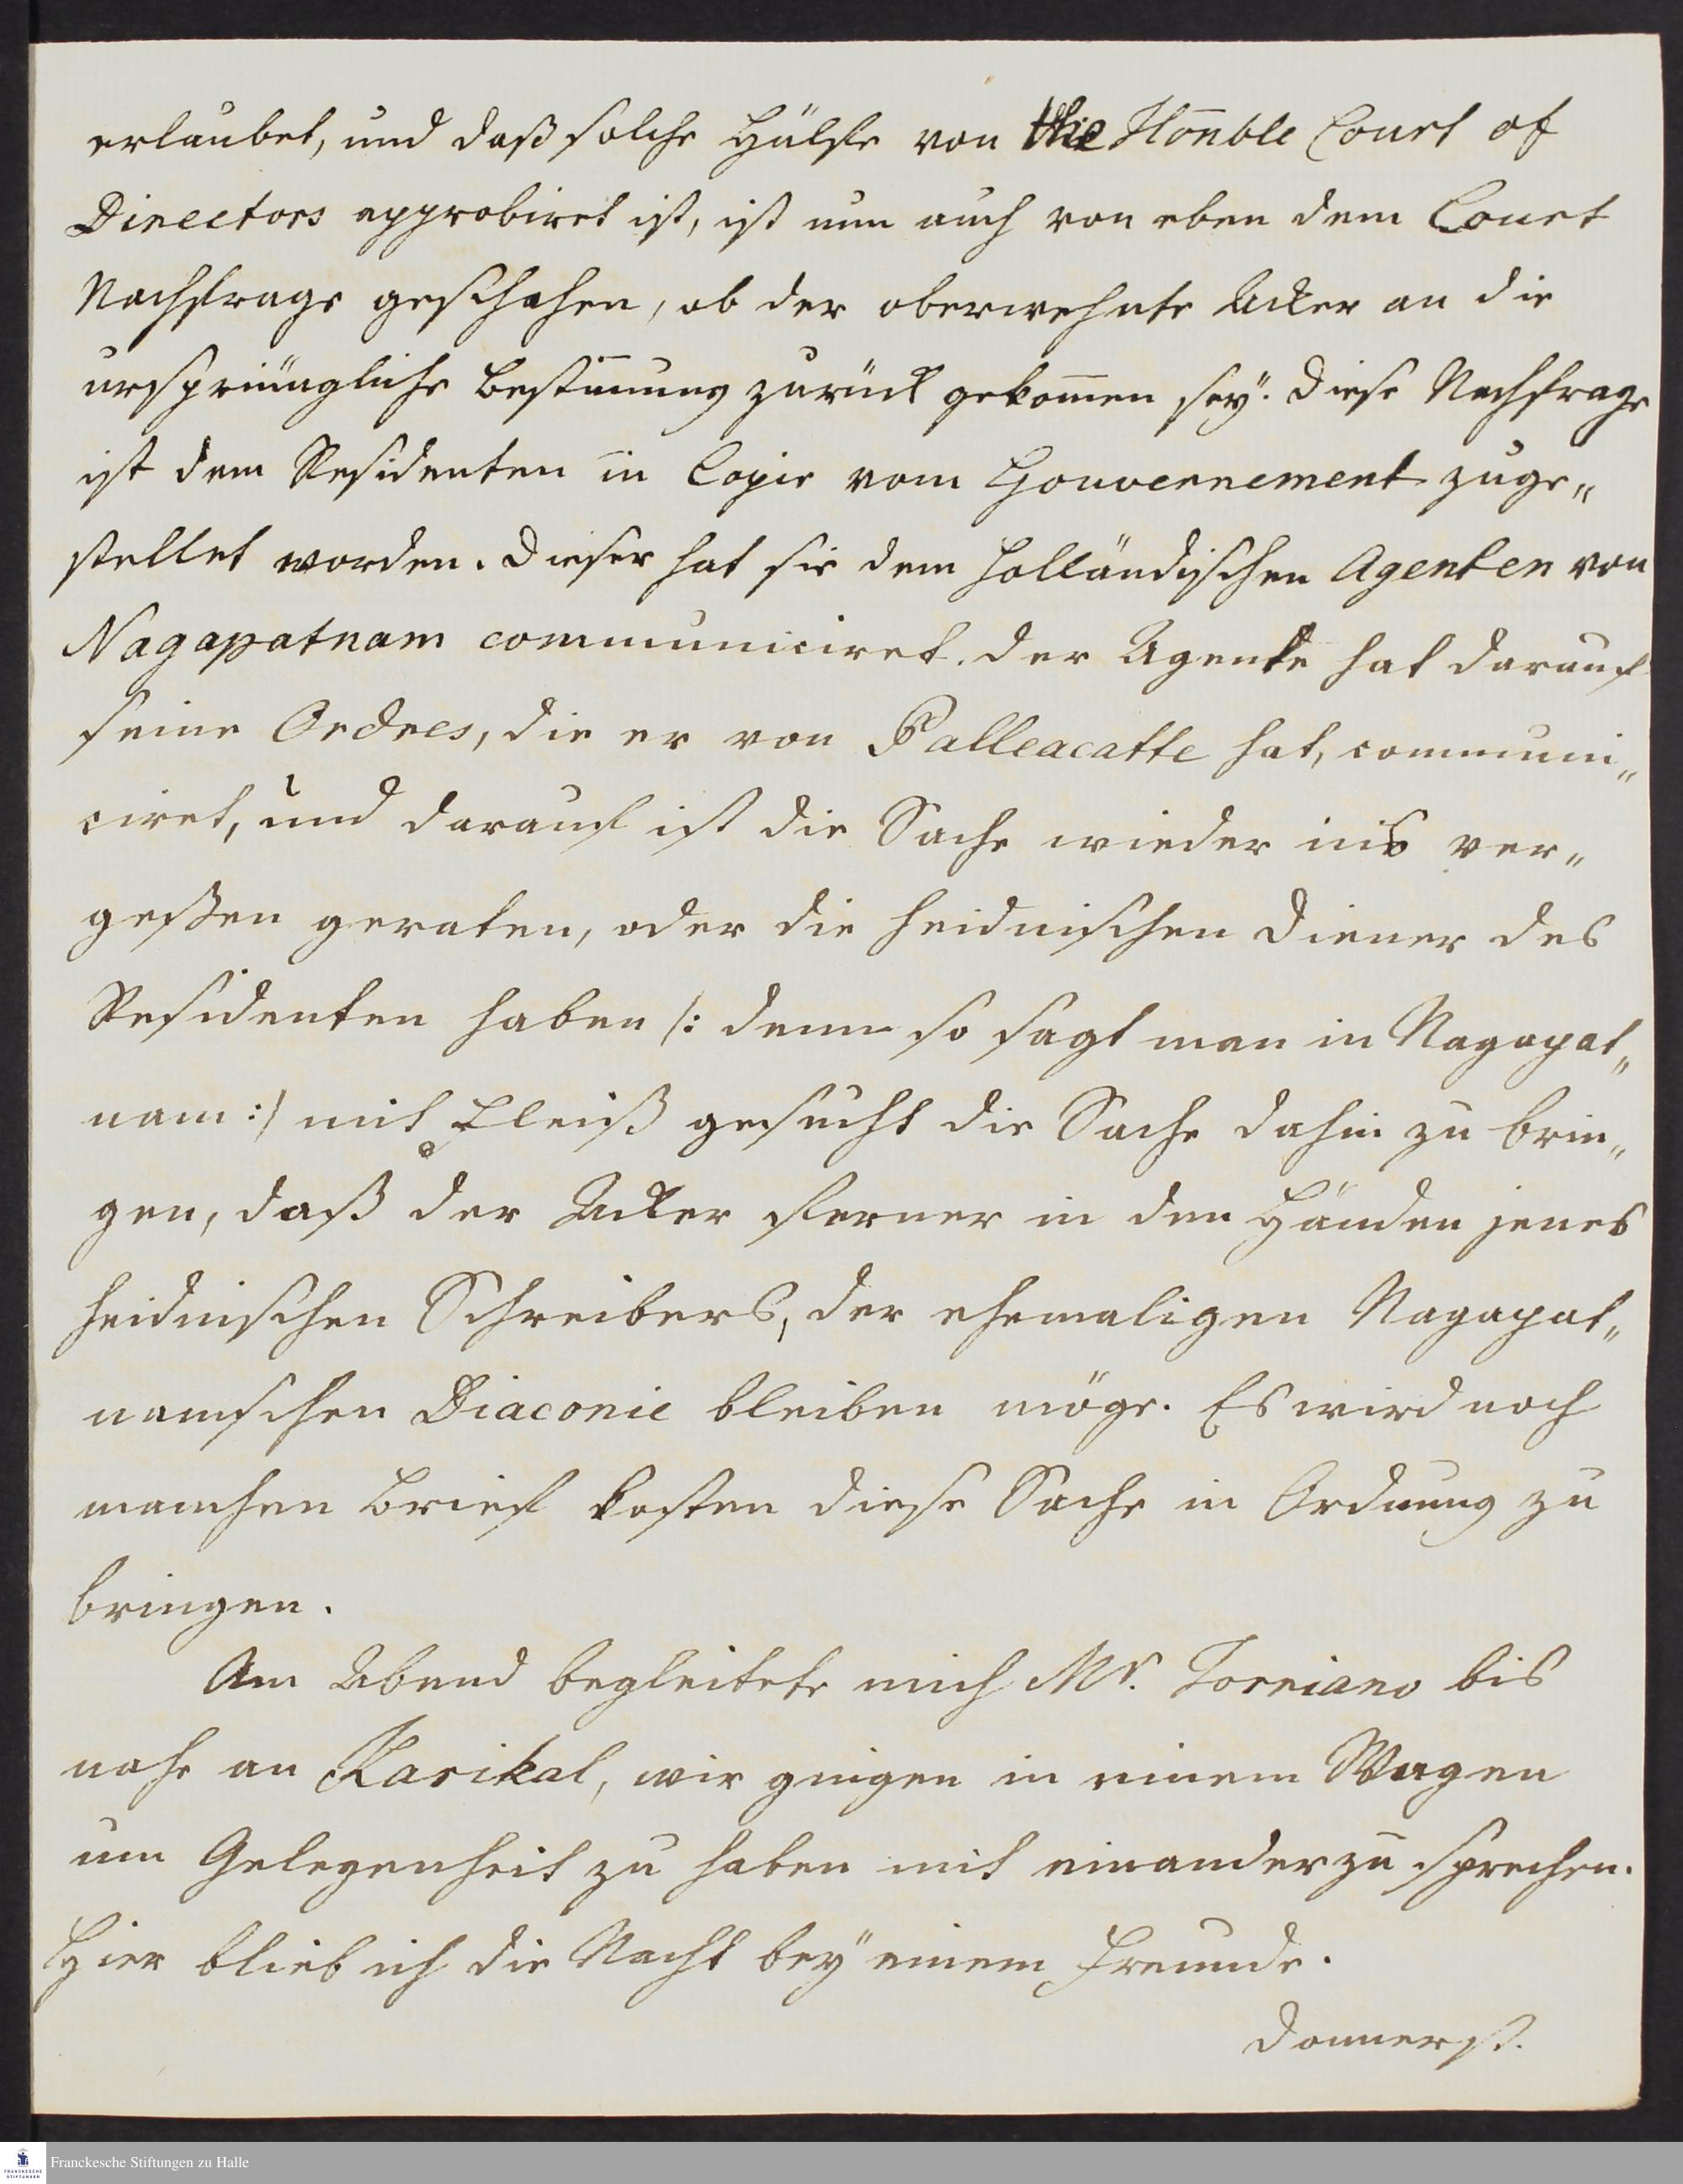 erlaubet, und daß solche Hülfe von the Hon̄ble Court of
Directors approbiret ist, ist nun auch von eben dem Court
Nachfrage geschehen, ob der oberwehnte Acker an die
ursprüngliche Bestim̄ung zurück gekom̄en seÿ. Diese Nachfrage
ist dem Residenten in Copie vom Gouvernement zuge„
stellet worden. Dieser hat sie dem holländischen Agenten von
Nagapatnam communiciret. Der Agente hat darauf
seine Ordres, die er von Palleacatte hat, communi„
ciret, und darauf ist die Sache wieder ins ver„
geßen geraten, oder die heidnischen Diener des
Residenten haben /: denn so sagt man in Nagapat„
nam :/ mit Fleiß gesucht die Sache dahin zu brin„
gen, daß der Acker ferner in den Händen jenes
heidnischen Schreibers, der ehemaligen Nagapat„
namschen Diaconie bleiben möge. Es wird noch
manchen Brief kosten diese Sache in Ordnung zu
bringen.
Am Abend begleitete mich Mr. Torriano bis
nahe an Karikal, wir gingen in einem Wagen
um Gelegenheit zu haben mit einander zu sprechen.
Hier blieb ich die Nacht beÿ einem Freunde.
Donnerst.
Franckesche Stiftungen zu Halle
FRANCKESCHE
STIFTUNGEN